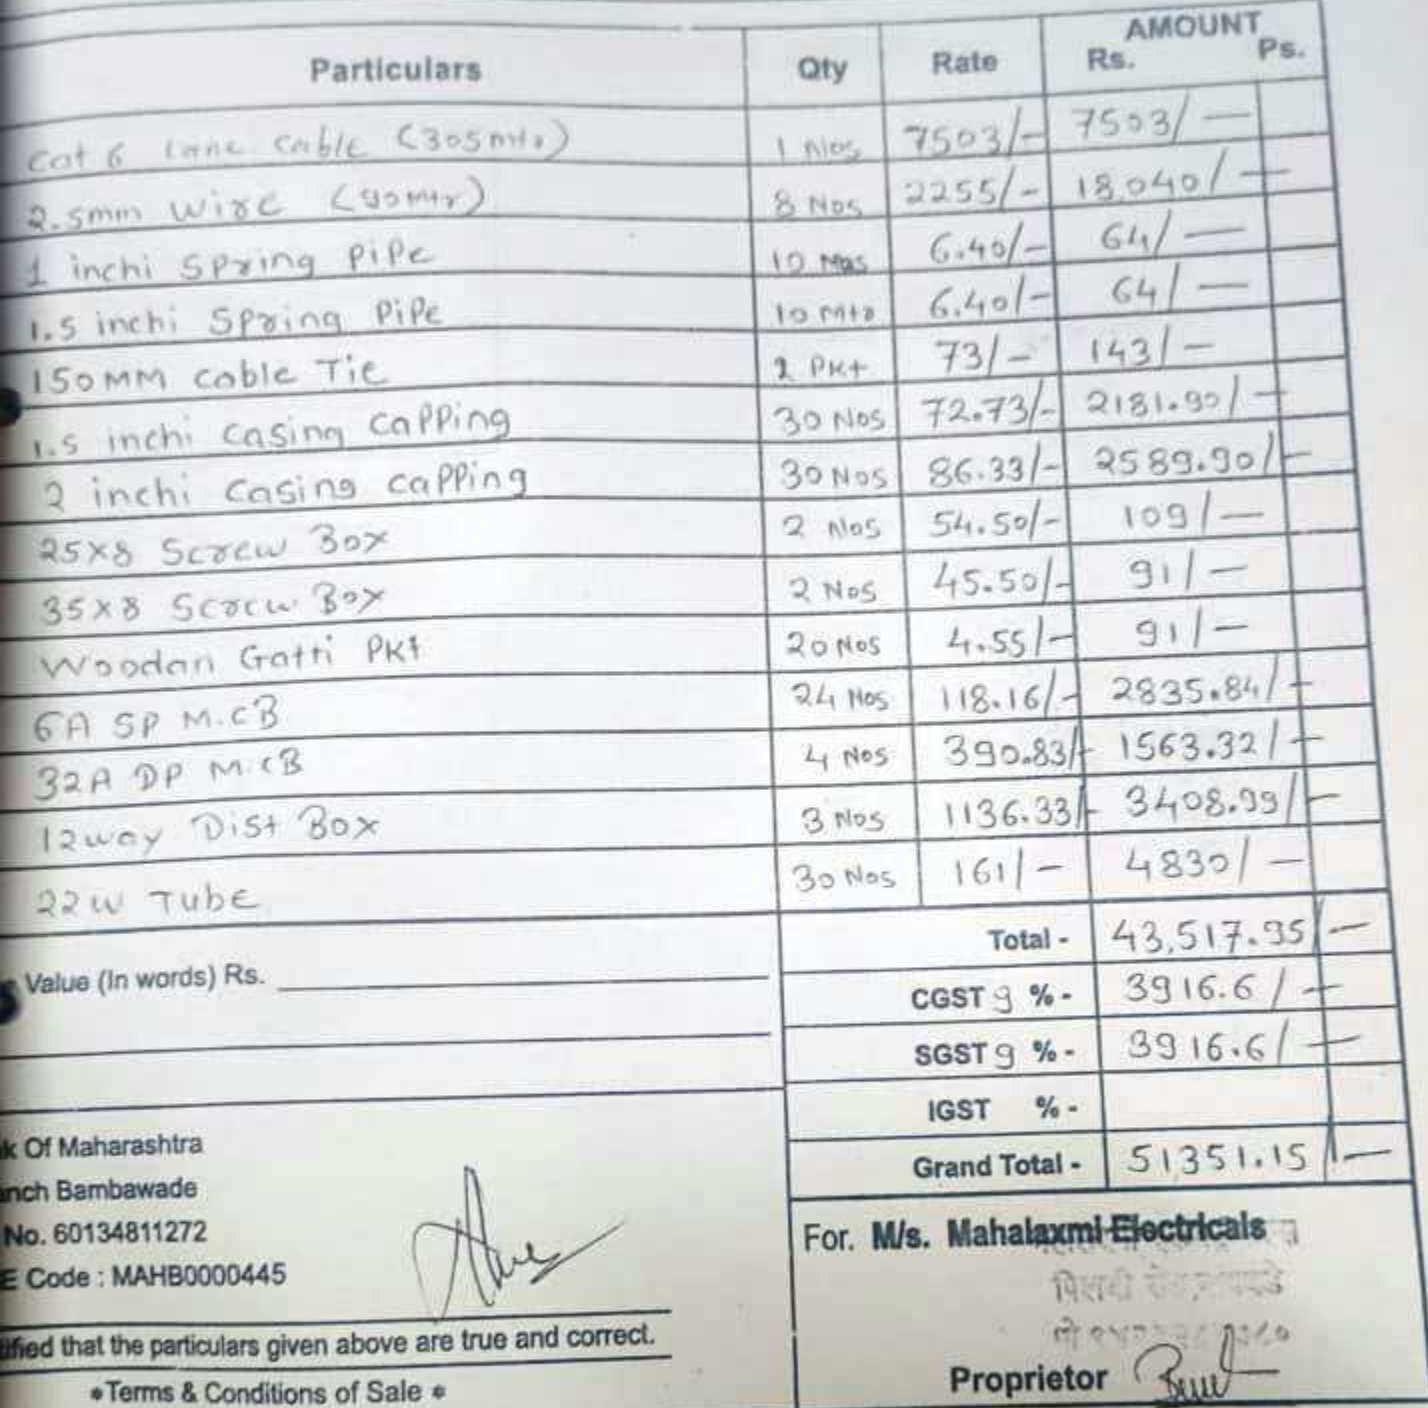 Particulars Qty Rate AMOUNT Rs. Ps.
Cat 6 Lane Cable (305mtr) 1 Nos 7503/- 7503/-
2.5mm Wire (90mtr) 8 Nos 2255/- 18,040/-
1 inchi Spring Pipe 10 6.40/- 64/-
1.5 inchi Spring Pipe 10 Mtr 6.40/- 64/-
150MM Cable Tie 2 Pkt 73/- 143/-
1.5 inchi Casing Capping 30 Nos 72.73/- 2181.90/-
2 inchi Casing Capping 30 Nos 86.33/- 2589.90/-
25x8 Screw Box 2 Nos 54.50/- 109/-
35x8 Screw Box 2 Nos 45.50/- 91/-
Woodan Gatti Pkt 20 Nos 4.55/- 91/-
6A SP M.CB 24 Nos 118.16/- 2835.84/-
32A DP M.CB 4 Nos 390.83/- 1563.32/-
12way Dist Box 3 Nos 1136.33/- 3408.99/-
22W Tube 30 Nos 161/- 4830/-
Total - 43,517.95/-
Value (In words) Rs.
CGST 9 % - 3916.6/-
SGST 9 % - 3916.6/-
IGST % -
Grand Total - 51,351.15/-
k Of Maharashtra
nch Bambawade
No. 60134811272
E Code : MAHB0000445
For. M/s. Mahalaxmi Electricals
tified that the particulars given above are true and correct.
*Terms & Conditions of Sale *
Proprietor